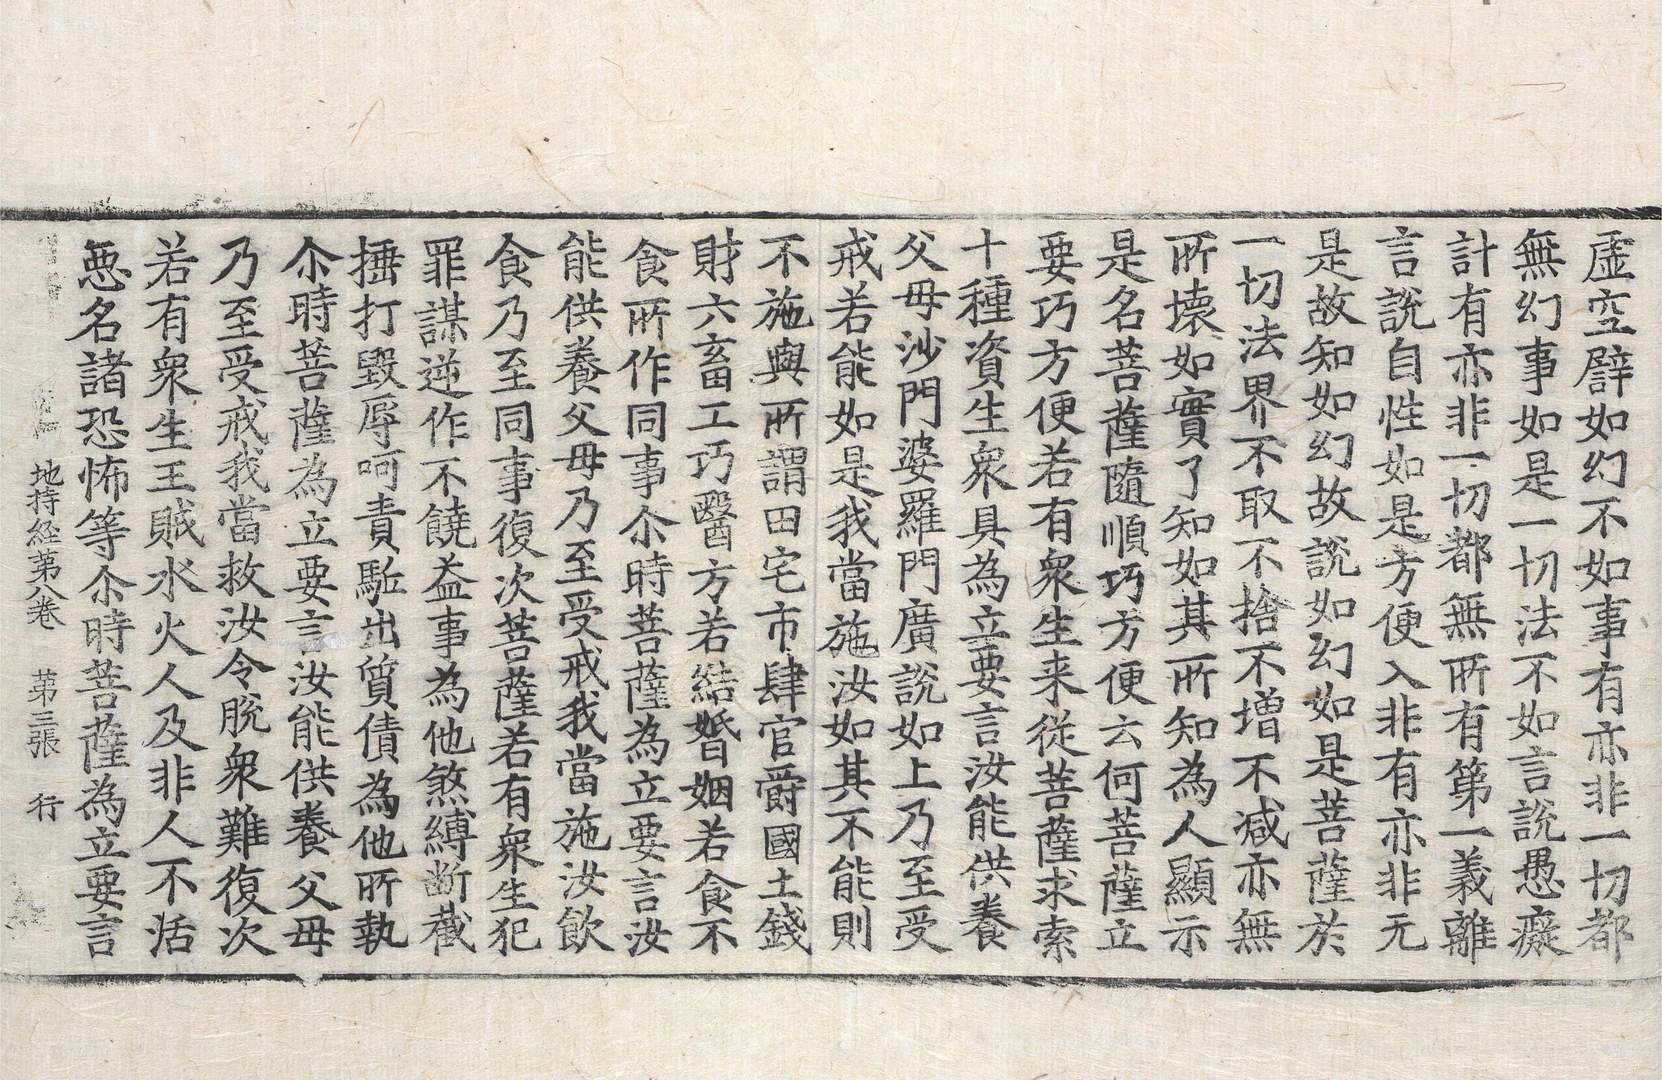 虛空譬如幻不如事有亦非一切都
無幻事如是一切法不如言說愚癡
計有亦非一切都無所有第一義離
言說自性如是方便入非有亦非无
是故知如幻故說如幻如是菩薩於
一切法界不取不捨不增不减亦無
所壞如實了知如其所知為人顯示
是名菩薩隨順巧方便云何菩薩立
要巧方便若有衆生来從菩薩求索
十種資生衆具為立要言汝能供養
父母沙門婆羅門廣說如上乃至受
戒若能如是我當施汝如其不能則
不施與所謂田宅市肆官爵國土錢
財六畜工巧醫方若結婚姻若食不
食所作同事尒時菩薩為立要言汝
能供養父母乃至受戒我當施汝飲
食乃至同事復次菩薩若有衆生犯
罪謀逆作不饒益事為他煞縛斷截
捶打毀辱呵責駈出質債為他所執
尒時菩薩為立要言汝能供養父母
乃至受戒我當救汝令脫衆難復次
若有衆生王賊水火人及非人不活
惡名諸恐怖等尒時菩薩為立要言
地持経第八卷 第三張 行